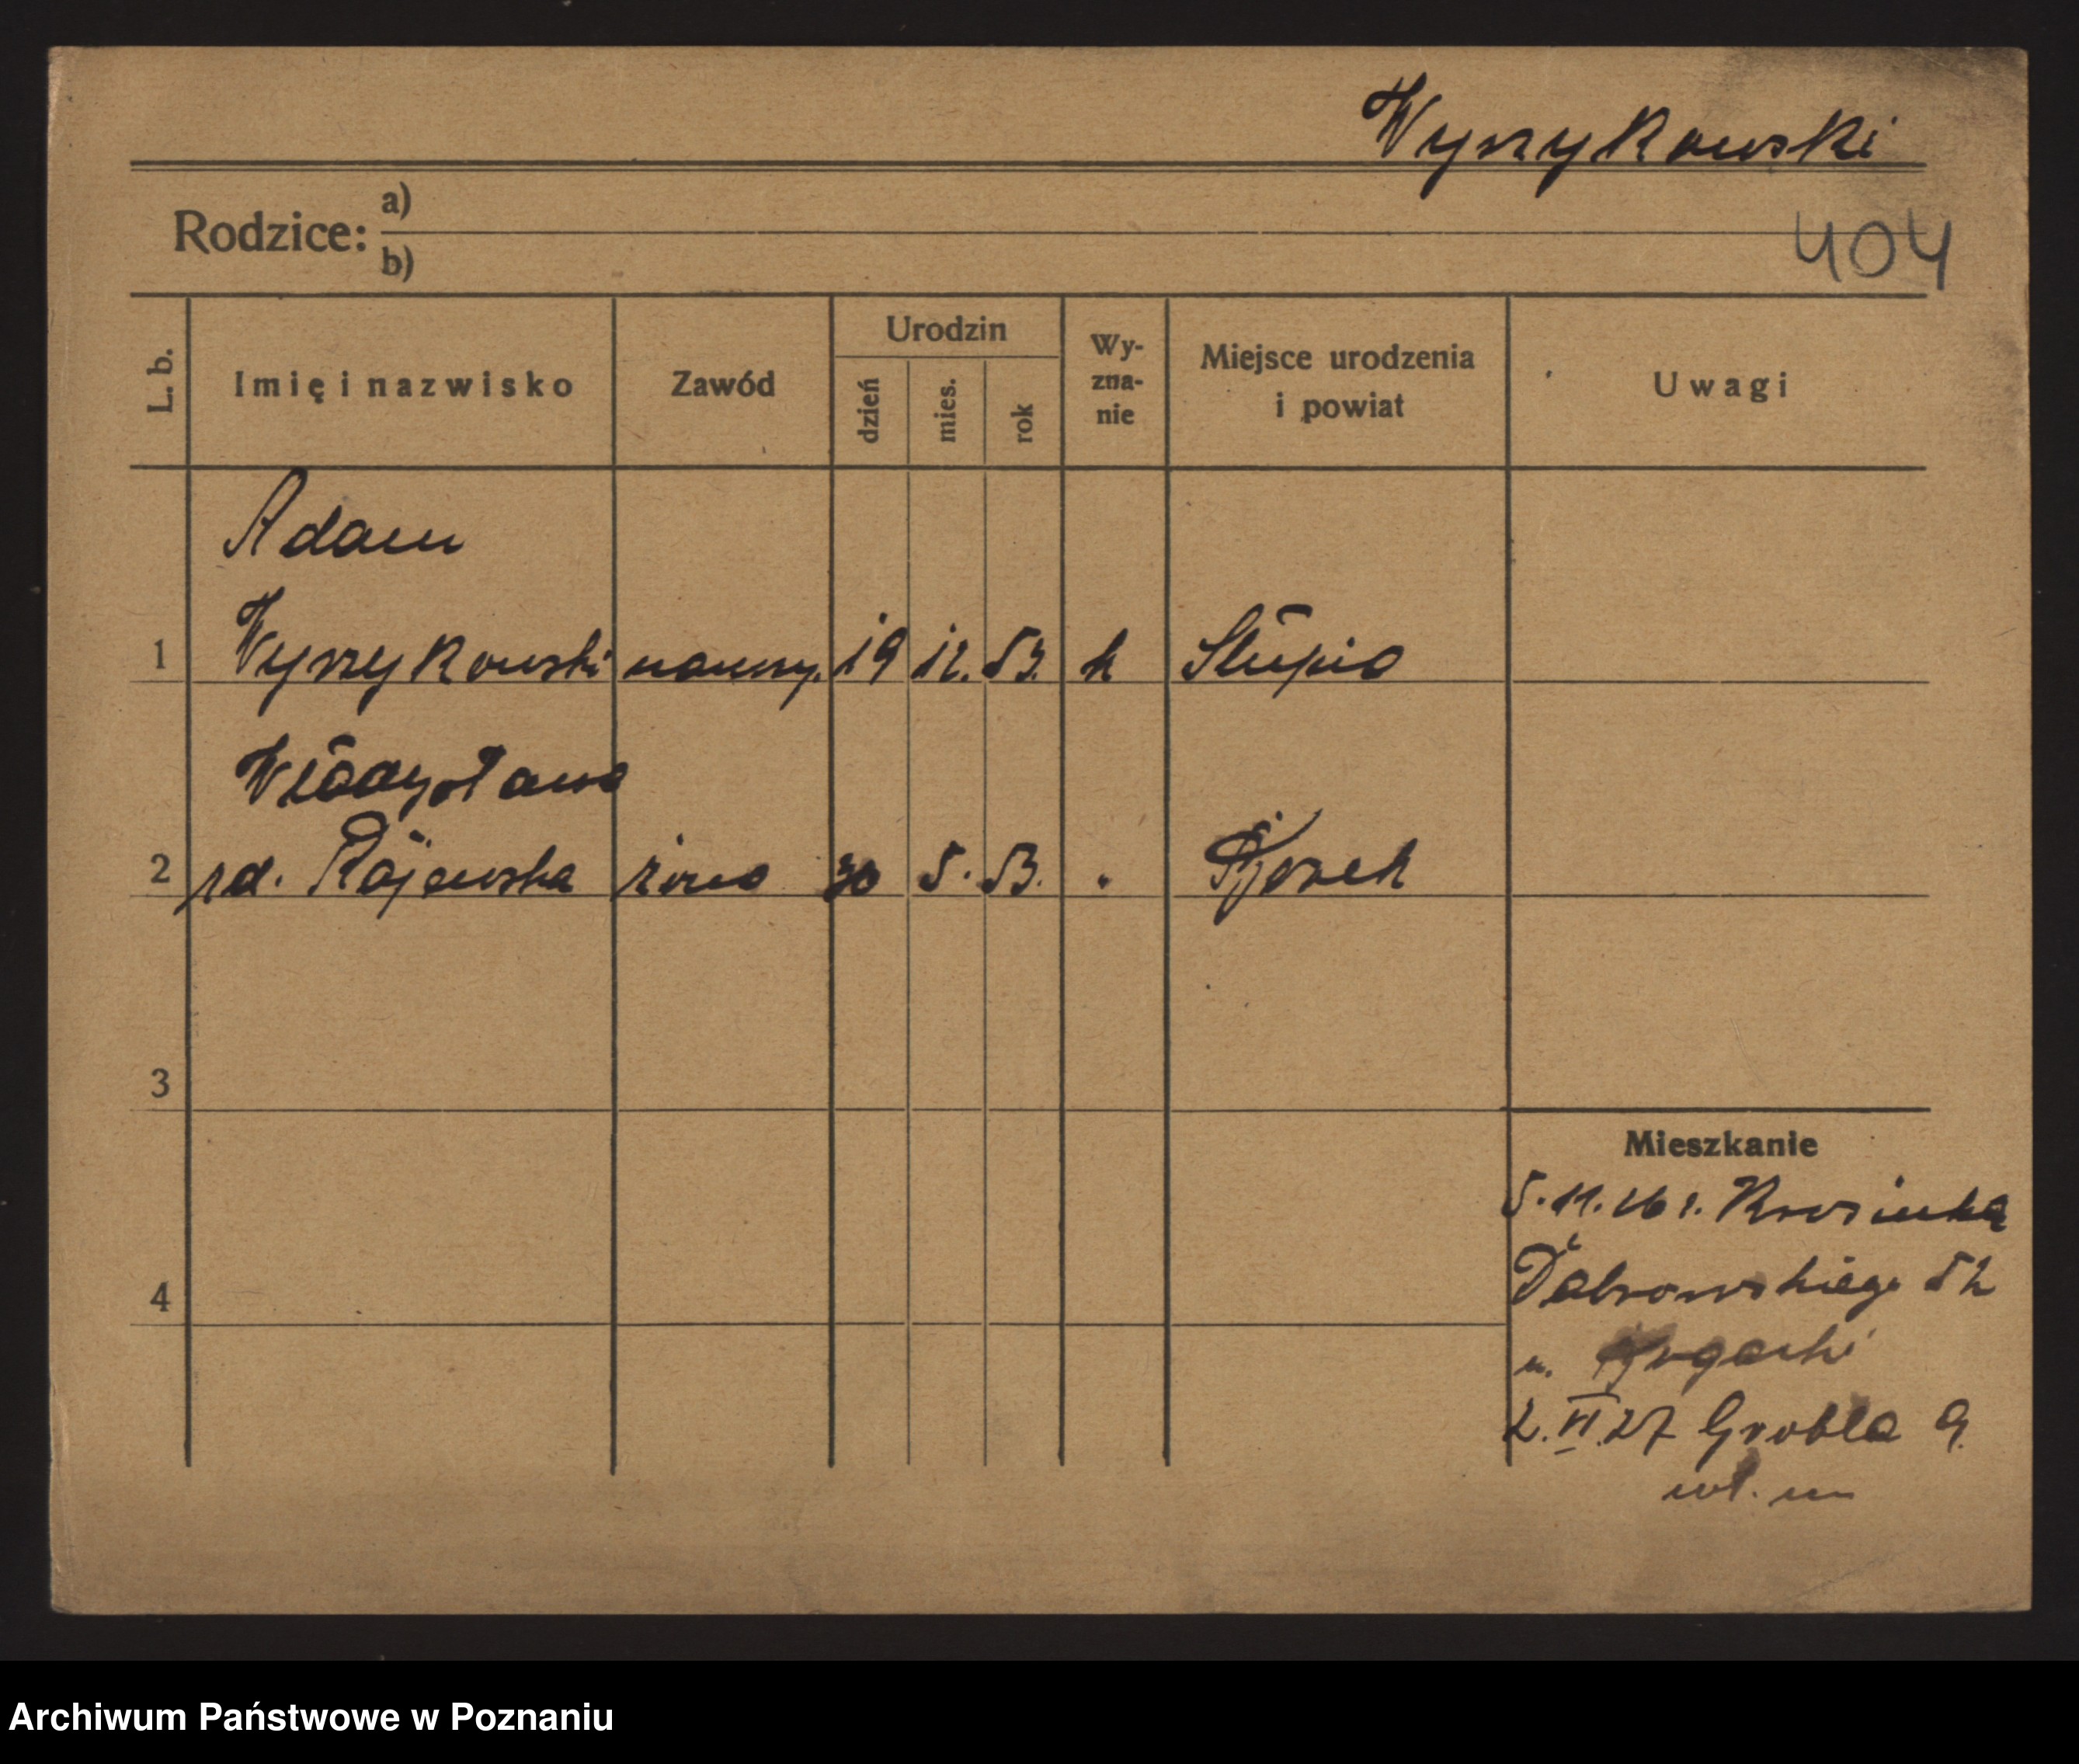 Wyszykowski
404
Rodzice: a)
b)
L. b.
Imię i nazwisko
Zawód
Urodzin
dzień
mies.
rok
Wy-
zna-
nie
Miejsce urodzenia
i powiat
Uwagi
Adam
1 Wyszykowski naucz. 19 12. 53. k Słupia
Władysława
2 rd. Rajewska żona 30 5. 53.
3
4
Mieszkanie
5.11.26 r.
Dąbrowskiego 52
u.
2.VI.27 Grobla 9.
wł. m
Archiwum Państwowe w Poznaniu